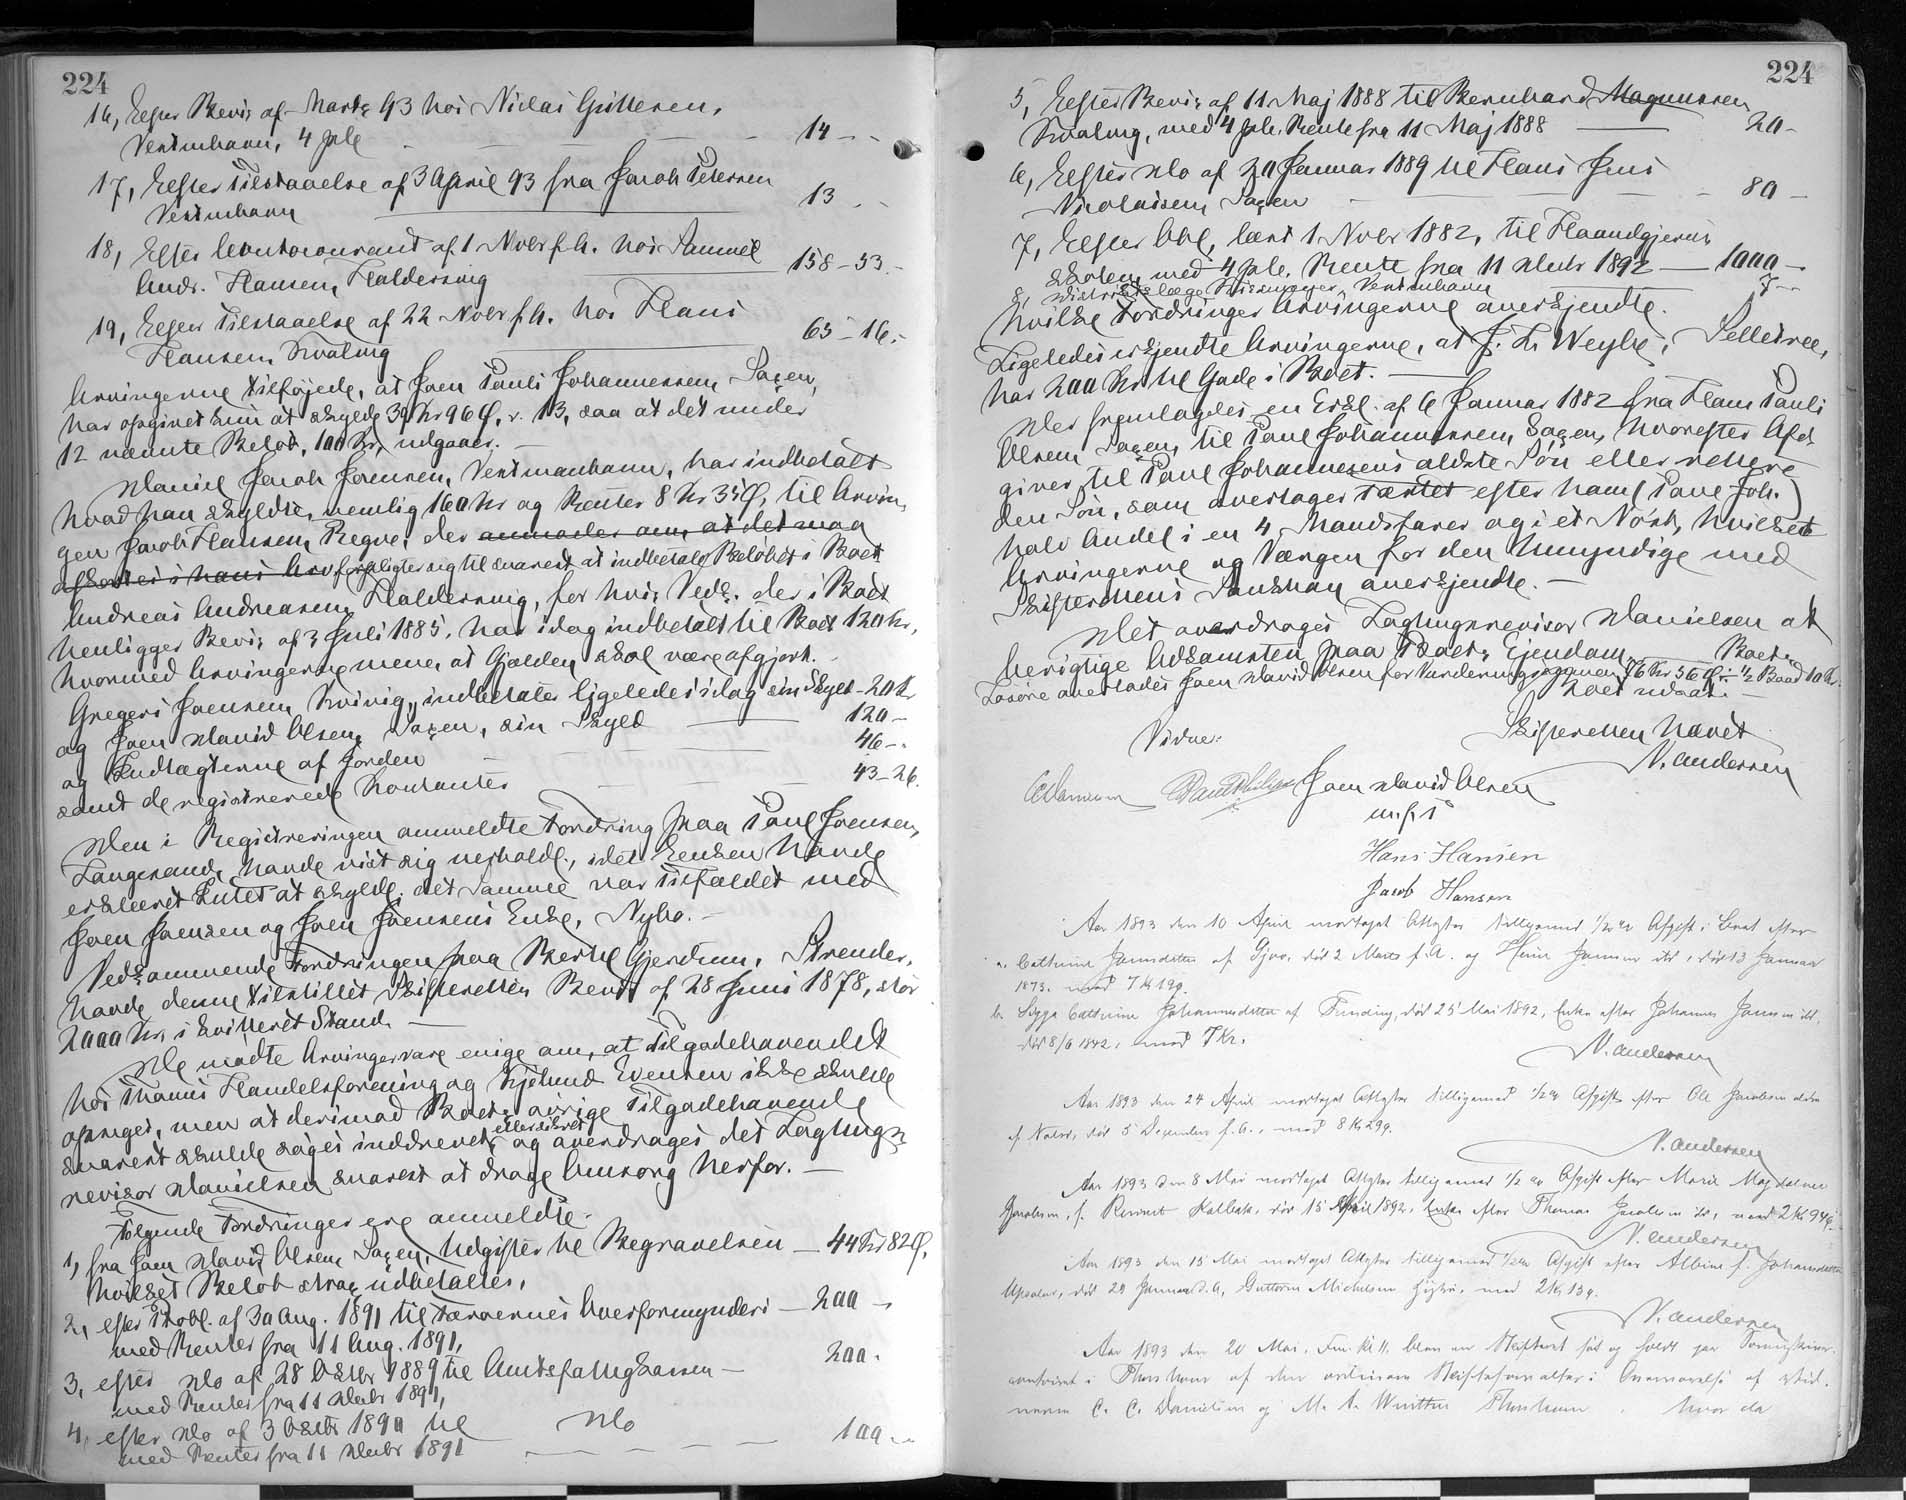 224
16, Efter Bevis af Marts 93 hos Niclas Guttesen,
Vestmhavn, 4 pCt 14 - -
17, Efter Tilstaaelse af 3 April 93 fra Jacob Petersen
Vestmhavn 13 - -
18, Efter Contocourant af 1 Novbr f. A. hos Samuel
Andr. Hansen, Haldersvig 158 - 53 -
19, Efter Tilstaaelse af 22 Novbr f. A. hos Hans
Hansen, Kvalvig 65 - 16 -
Arvingerne tilføjede, at Joen Pauli Johannessen, Saxen,
har opgivet kun at skylde 39 Kr 96 Ø, v. 13, saa at det under
12 nævnte Beløb, 100 Kr, udgaaer. -
Daniel Jacob Joensen, Vestmanhavn, har indbetalt
hvad han skyldte, nemlig 160 Kr og Renter 8 Kr 35 Ø, til Arvin-
gen Jacob Hansen, der anmoder om, at det maa
afkortes i hans Arv forpligter sig til snarest at indbetale Beløbet i Boet
Andreas Andreasen, Haldersvig, for hvis Vedk. der i Boet
henligger Bevis af 3 Juli 1885, har idag indbetalt til Boet 120 Kr,
hvormed Arvingerne mener at Gjælden skal være afgjort. -
Gregers Joensen, Kvivig, indbetaler ligeledes idag sin Skyld - 20 Kr
og Joen David Olsen, Saxen, sin Skyld 120 -
og Indtægterne af Jorden 46 - -
samt de registrerede Contanter 43 - 26.
Den i Registreringen anmeldte Fordring paa Poul Joensen,
Langesand, havde vist sig urholdl., idet Enken havde
erklæret Intet at skylde. det Samme var Tilfældet med
Joen Joensen og Joen Joensens Enke, Nybo. -
Vedkommende Fordringen paa Bertel Gjerdum, Strender,
havde denne tilstillet Skifteretten Bevis af 28 Juni 1878, stor
2000 Kr, i kvitteret Stand. -
De mødte Arvinger vare enige om, at Tilgodehavendet
hos Thorshavns Handelsforening og Evensen ikke skulde
opsiges, men at derimod Boets øvrige Tilgodehavende
snarest skulde søges inddrevet eller sikret og overdroges det Lagtings-
revisor Danielsen snarest at drage Omsorg herfor. -
Følgende Fordringer ere anmeldte.
1, fra Joen David Olsen, Saxen, Udgifter til Begravelsen - 44 Kr 82 Ø,
hvilket Beløb strax udbetaltes,
2, efter Obl. af 30 Aug. 1891 til Færøernes Overformynderi - 200 -
med Renter fra 11 Aug. 1891,
3, efter Do af 28 Oktbr 1889 til Amtsfattigkassen - 200 -
med Renter fra 11 Decbr 1891,
4, efter Do af 3 Oktbr 1890 til Do
med Renter fra 11 Decbr 1891 100 - -
224
5, Efter Bevis af 11 Maj 1888 til Bernhard Magnussen
Kvalvig, med 4 pCt. Rente fra 11 Maj 1888 20 -
6, Efter Do af 20 Januar 1889 til Hans Jens
Nicolaisen, Saxen 80 -
7, Efter Obl, læst 1 Novbr 1882, til Haandgjernings
skolen med 4 pCt. Rente fra 11 Decbr 1892 - 1000 -
8, Distriktslæge, Vestmhavn 7 - -
hvilke Fordringer Arvingerne anerkjendte.
Ligeledes erkjendte Arvingerne, at J. L. Weyhe, Selletræ,
har 200 Kr til Gode i Boet. -
Der fremlagdes en Erkl. af 6 Januar 1882 fra Hans Pauli
Olsen, Saxen, til Poul Johannessen, Saxen, hvorefter Afd
giver til Poul Johannesens ældste Søn eller rettere
den Søn, som overtager Fæstet efter ham (Poul Joh.)
halv Andel i en 4 Mandsfarer og i et Nøst, hvilket
Arvingerne og Værgen for den Umyndige med
Skifterettens Samtykke anerkjendte. -
Det overdroges Lagtingsrevisor Danielsen at
berigtige Adkomsten paa Boets Ejendom. Boets
Løsøre overlodes Joen David Olsen for Vurderingssummen, 76 Kr 56 Ø - ½ Baad 10 Kr.
Skifteretten hævet
Vidne: N. Andersen
CDanielsen Joen David Olsen
m. f. P
Hans Hansen
Jacob Hansen
Aar 1893 den 10 April modtaget Attester tilligemed ½ % Afgift i Boet efter
a. Cathrine Joensdatter af Gjov, død 2 Marts f. A. og Joensen ibd, død 13 Januar
1873. med 7 Kr 19 Ø.
b. Sigga Cathrine Johannesdatter af Funding, død 25 Mai 1892, Enke efter Johannes Joensen ibd,
død 8/6 1842, med 7 Kr.
N. Andersen
Aar 1893 den 24 April modtaget Attester tilligemed ½ % Afgift efter Ole Jacobsen
af, død 5 December f. A., med 8 Kr 29 Ø.
N. Andersen
Aar 1893 den 8 Mai modtaget Attester tilligemed ½ % Afgift efter Marie Magdalene
Jacobsen, f. Kalbak, død 15 April 1892, Enke efter Thomas Jacobsen ibd, med 2 Kr 94 Ø.
N. Andersen
Aar 1893 den 15 Mai modtaget Attester tilligemed ½ % Afgift efter Albine f. Johannesdatter
død 20 Januar d. A, Guttorm Michelsens Hustru, med 2 Kr 13 Ø.
N. Andersen
Aar 1893 den 20 Mai, Fm. Kl 11, blev en Skifteret sat og holdt paa Sorenskriver-
contoiret i Thorshavn af den ordinære Skifteforvalter i Overværelse af Vid-
nerne C. C. Danielsen og M. A. Winther Thorshavn. hvor da